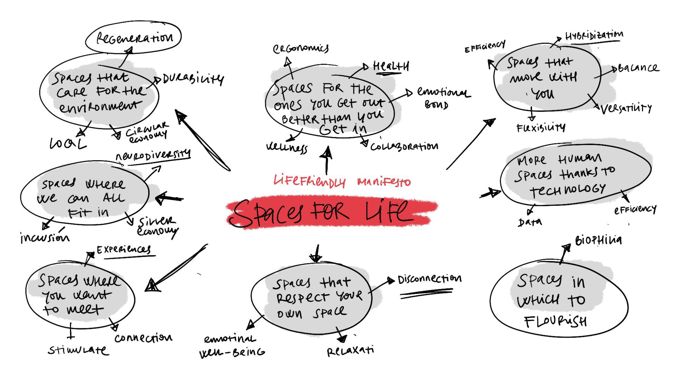 Regeneration
Spaces that
care for the
environment
Durability
Local
Circular
economy
ergonomics
Health
Spaces for the
ones you get out
better than you
get in
emotional
bond
wellness
collaboration
Hybridization
Efficiency
Spaces that
move with
you
Balance
Versatility
Flexibility
neurodiversity
Spaces where
we can all
fit in
inclusión
Silver
economy
Lifefriendly Manifesto
Spaces for Life
More Human
Spaces thanks to
technology
Data
efficiency
Experiences
Spaces where
you want
to meet
Stimulate
connection
Spaces that
respect your
own space
Disconnection
emotinal
well-being
relaxati
Biophilia
Spaces in
which to
flourish